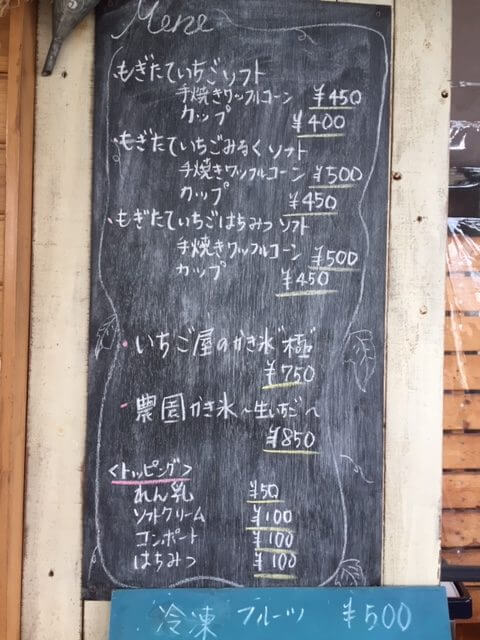 Menu
・もぎたていちごソフト
手焼きワッフルコーン ¥450
カップ ¥400
・もぎたていちごみるくソフト
手焼きワッフルコーン ¥500
カップ ¥450
・もぎたていちごはちみつソフト
手焼きワッフルコーン ¥500
カップ ¥450
・いちご屋のかき氷"極"
¥750
・農園かき氷〜生いちご〜
¥850
<トッピング>
れん乳 ¥50
ソフトクリーム ¥100
コンポート ¥100
はちみつ ¥100
冷凍フルーツ ¥500